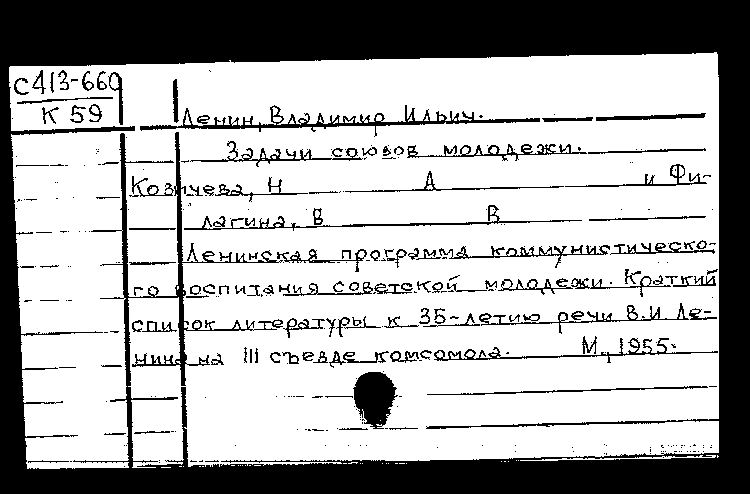 С413-660
К 59
Ленин, Владимир Ильич.
Задачи союзов молодежи.
Козичева, Н А и Фи-
лагина, В В
Ленинская программа коммунистическо-
го воспитания советской молодежи. Краткий
список литературы к 35-летию речи В.И Ле-
нина на III съезде комсомола. М., 1955.